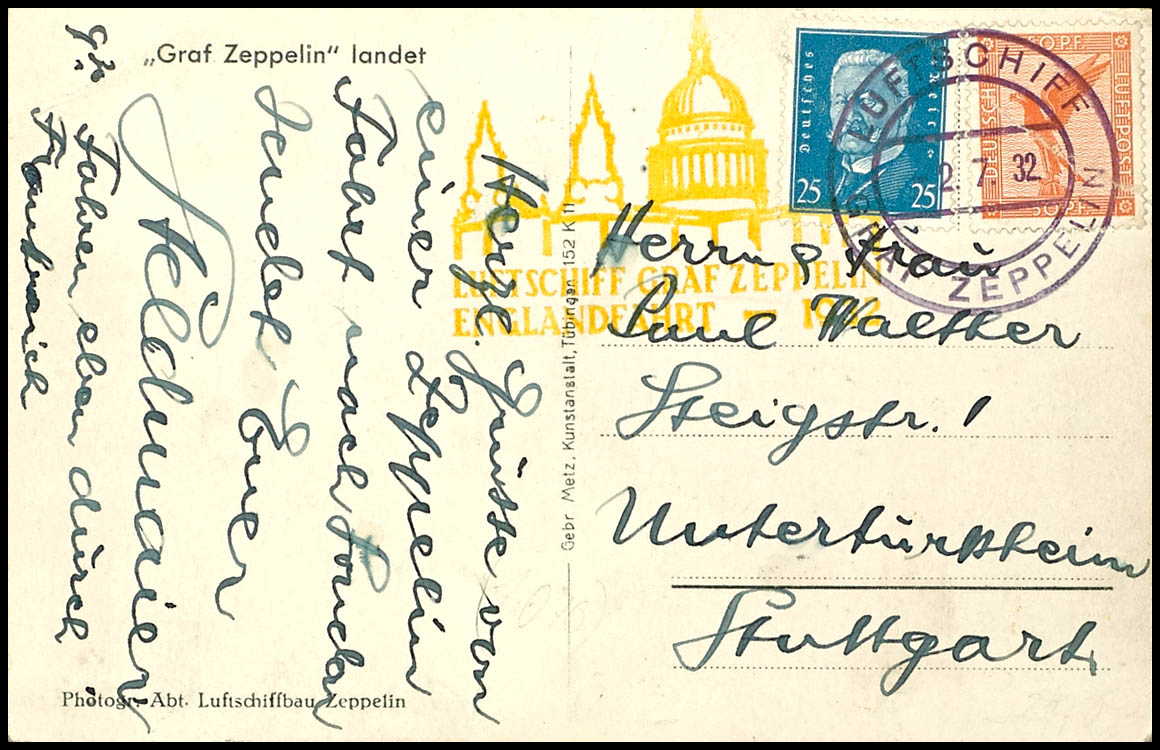 „Graf Zeppelin“ landet
Herzl. Grüsse von
einer Zeppelin
Fahrt nach London
sendet Euer
Fahren eben durch
Frankreich
Photogr. Abt. Luftschiffbau Zeppelin
Gebr. Metz, Kunstanstalt, Tübingen 152 K 11
LUFTSCHIFF GRAF ZEPPELIN
ENGLANDFAHRT – 1932
Deutsches Reich
25 25
50 PF.
DEUTSCHE LUFTPOST
50 PF.
LUFTSCHIFF
2. 7. 32
GRAF ZEPPELIN
Herrn & Frau
Paul Walther
Steigstr. 1
Untertürkheim
Stuttgart.